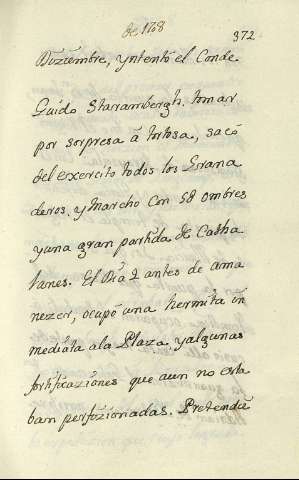 de 1708
372
Diziembre, yntentó el Conde
Guido Starambergh. tomar
por sorpresa â tortosa, sacó
del exercito todos los Grana
deros. y Marcho con 5@ ombres
yuna gran partida de Catha
lanes. El Dia 2 antes de ama
nezer, ocupó una hermita in
mediata ala Plaza. yalgunas
fortificaziones que aun no esta
ban perfizionadas. Pretendiẽ